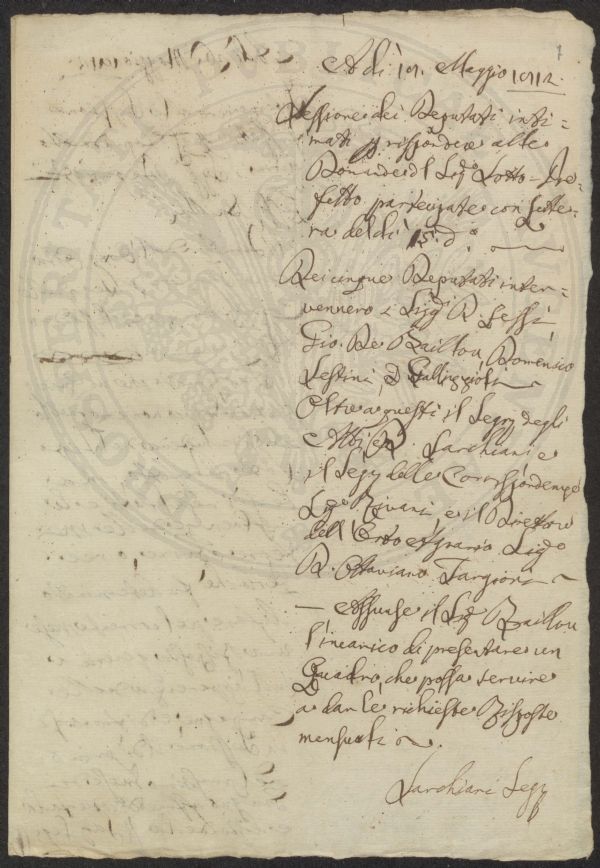 Adì 19. Maggio 1812.
Sessione dei Deputati inti=
mati p. rispondere alle
Domande del Sigre Sotto-Pre=
fetto partecipate con Lette=
ra del dì 15. do.
Dei cinque Deputati inter=
vennero i Sigri D. Sessi
Gio. De Baillou, Domenico
Sestini, D Gallizioli
Oltre a questi il Segrio degli
Atti D. Sarchiani e
il Segrio delle Corrispondenze
Sigre Rivani e il Direttore
dell'Orto Agrario Sigre
D. Ottaviano Targioni
— Assunse il Sigre Baillou
l'incarico di presentare un
Quadro, che possa servire
a dar le richieste Risposte
mensuali.
Sarchiani Segrio